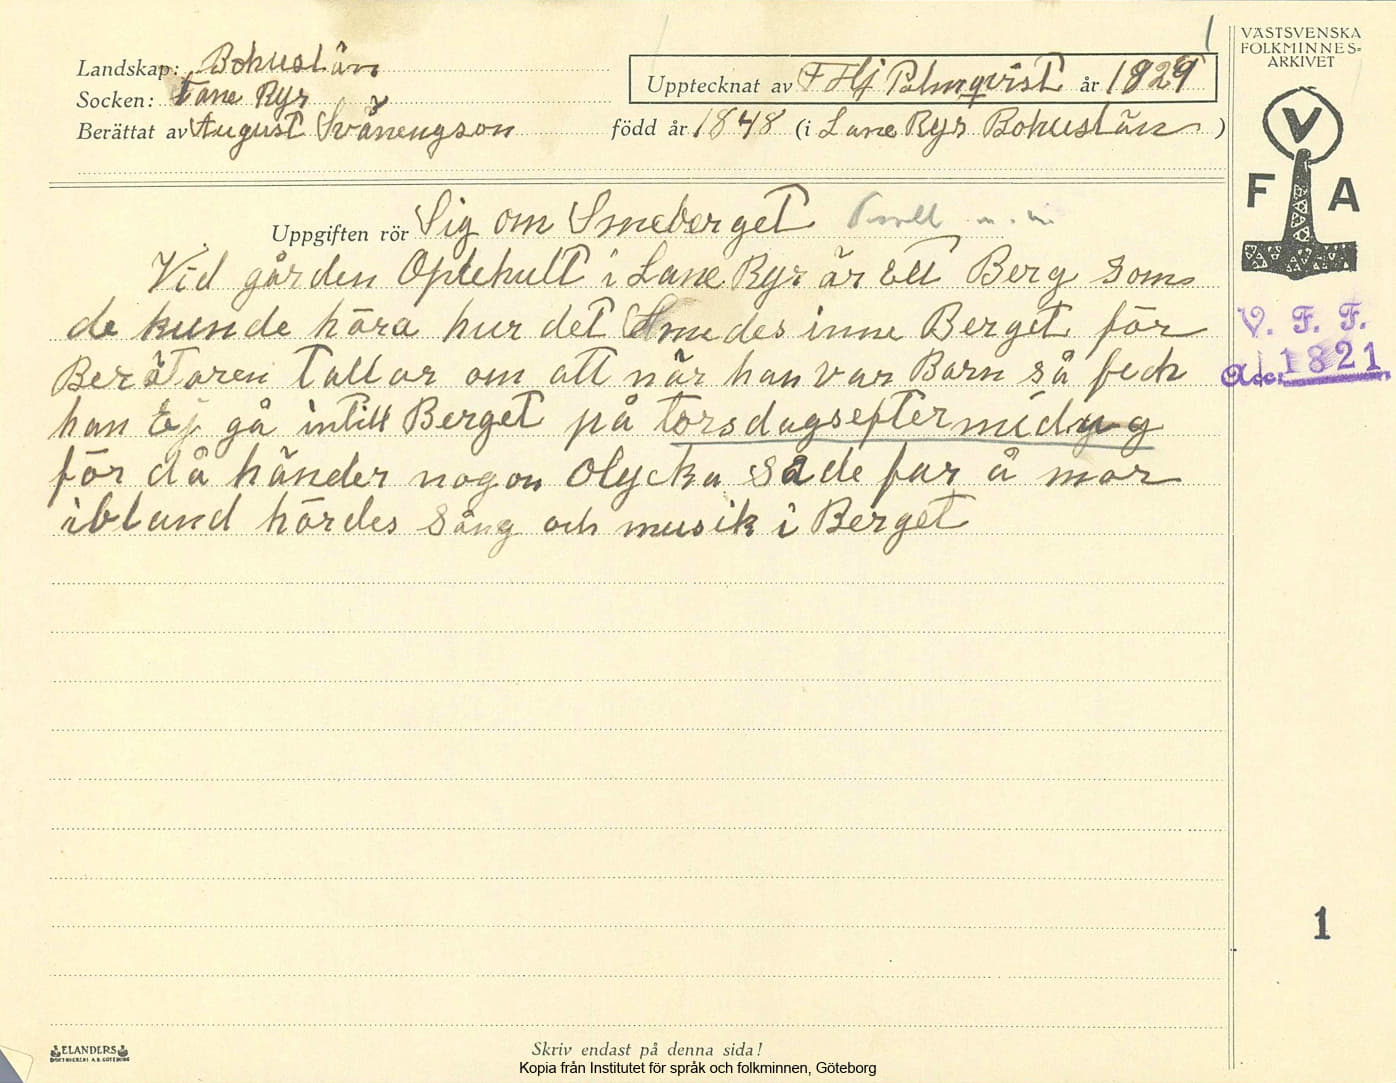 Landskap: Bohuslän
Socken: Lane Ryr
Berättat av August Svänengson
Upptecknat av F Hj Palmqvist år 1929
född år 1848 (i Lane Ryr Bohuslän)
VÄSTSVENSKA
FOLKMINNES-
ARKIVET
V
F A
Uppgiften rör Sig om Smeberget
Vid gården Optehult i Lane Ryr är ett Berg som
de kunde höra hur det Smedes inne Berget för
Berätaren tallar om att när han var Barn så feck
han Ej gå intill Berget på torsdagseftermidag
för då händer nogon Olycka Sade far å mor
ibland hördes Sång och musik i Berget
V. F. F.
Acc. 1821
1
ELANDERS
BOKTRYCKERI A.B. GÖTEBORG
Skriv endast på denna sida!
Kopia från Institutet för språk och folkminnen, Göteborg